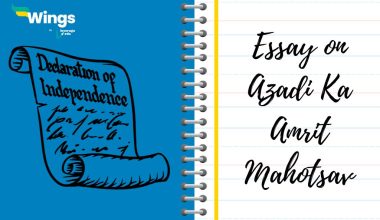 Wings
Declaration of
Independence
Essay on
Azadi Ka
Amrit
Mahotsav